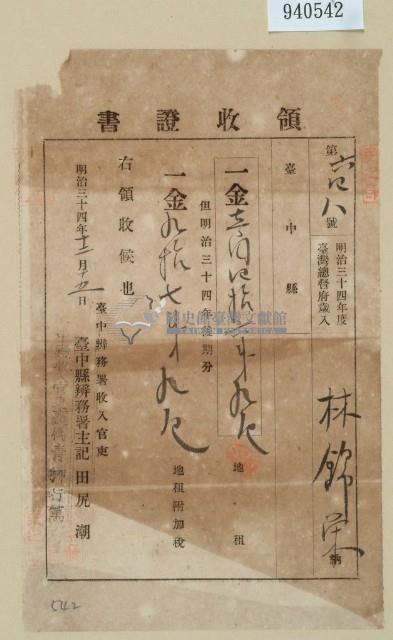 940542
領收證書
第六百八號
明治三十四年度
臺灣總督府歲入
林錦榮 納
臺中縣
一金壹圓四拾 九厘 地租
但明治三十四年後期分
一金九拾七 九厘 地租附加稅
右領收候也
明治三十四年十二月十五日
臺中辨務署收入官吏
臺中縣辨務署主記 田尻潮
國史館臺灣文獻館
542